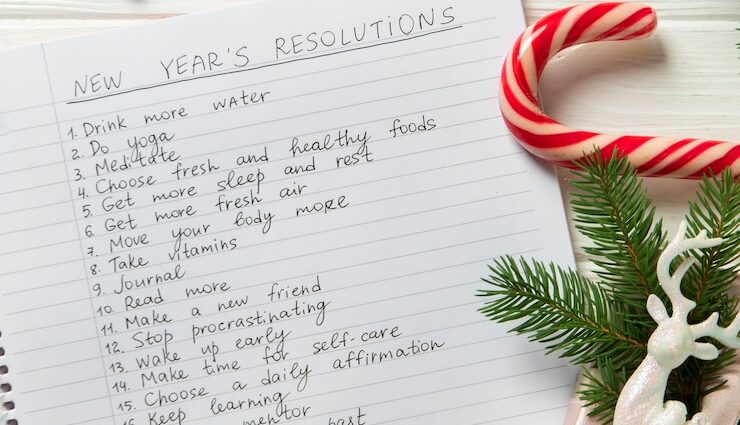 NEW YEAR'S RESOLUTIONS
1. Drink more water
2. Do yoga
3. Meditate
4. Choose fresh and healthy foods
5. Get more sleep and rest
6. Get more fresh air
7. Move your body more
8. Take vitamins
9. Journal
10. Read more
11. Make a new friend
12. Stop procrastinating
13. Wake up early
14. Make time for self-care
15. Choose a daily affirmation
16. Keep learning
mentor past